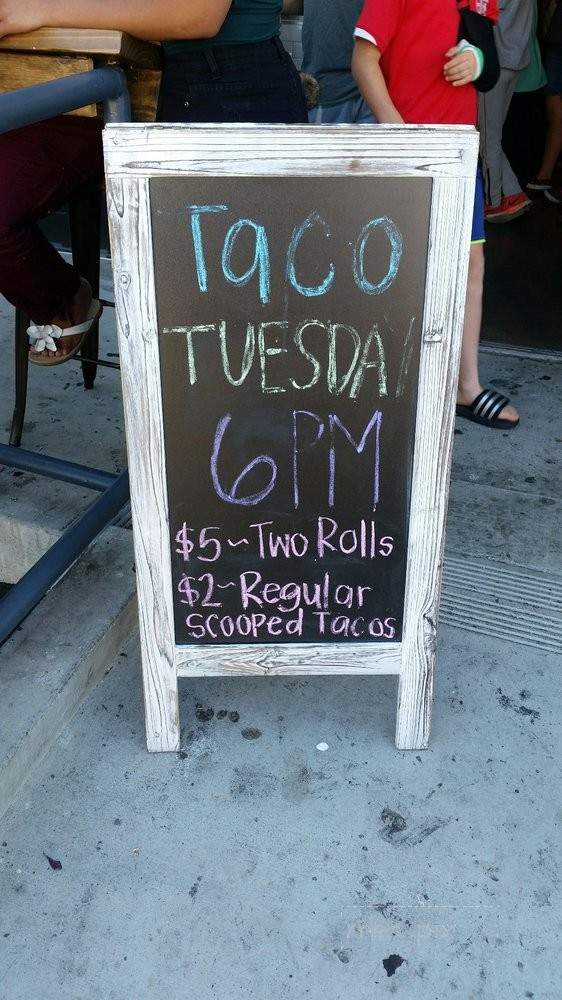 Taco
TUESDAY
6PM
$5~Two Rolls
$2~Regular
Scooped Tacos